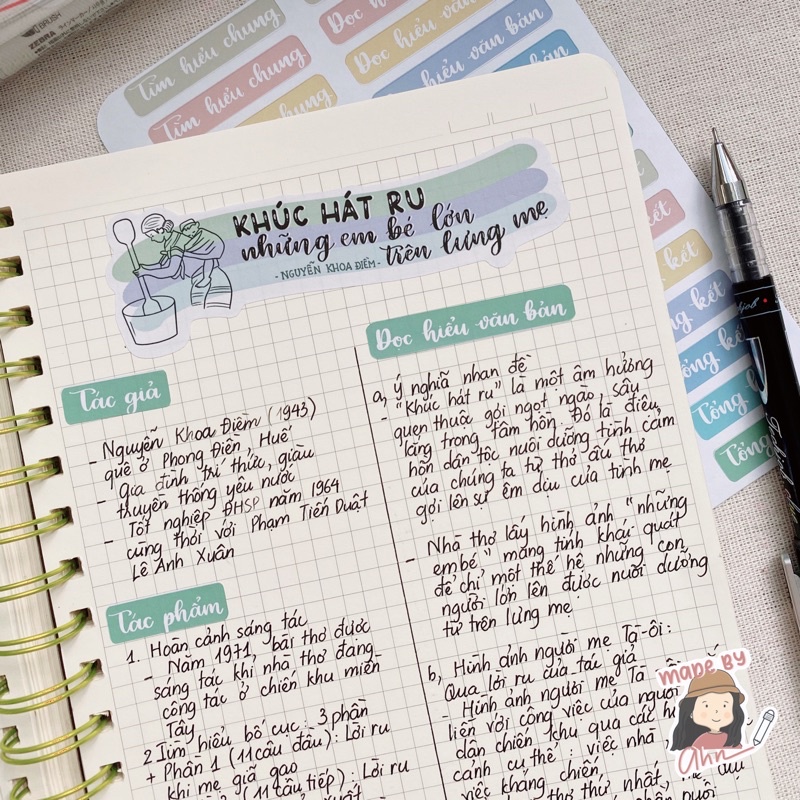 BRUSH
ZEBRA
Tìm hiểu chung
Tìm hiểu chung
Đọc hiểu văn bản
KHÚC HÁT RU
những em bé lớn
trên lưng mẹ
- NGUYỄN KHOA ĐIỀM -
Tác giả
- Nguyễn Khoa Điềm (1943)
quê ở Phong Điền, Huế
- Gia đình trí thức, giàu
truyền thống yêu nước
- Tốt nghiệp ĐHSP năm 1964
cùng thời với Phạm Tiến Duật
Lê Anh Xuân
Tác phẩm
1. Hoàn cảnh sáng tác
- Năm 1971, bài thơ được
sáng tác khi nhà thơ đang
công tác ở chiến khu miền
Tây
2 Tìm hiểu bố cục: 3 phần
+ Phần 1 (11 câu đầu): Lời ru
khi mẹ giã gạo
(11 câu tiếp): Lời ru
Đọc hiểu văn bản
a, Ý nghĩa nhan đề
- "Khúc hát ru" là một âm hưởng
quen thuộc gợi ngọt ngào, sâu
lắng trong tâm hồn. Đó là điệu
hồn dân tộc nuôi dưỡng tình cảm
của chúng ta từ thở ấu thơ
gợi lên sự êm dịu của tình mẹ
- Nhà thơ lấy hình ảnh "những
em bé" mang tính khái quát
để chỉ một thế hệ những con
người lớn lên được nuôi dưỡng
từ trên lưng mẹ
b, Hình ảnh người mẹ Tà-ôi:
Qua lời ru của tác giả
- Hình ảnh người mẹ Tà
liền với công việc của người
dân chiến khu qua các
cảnh cụ thể: việc nhà
việc kháng chiến,
thơ thứ nhất, mẹ
kết
tổng kết
Tổng kết
Tổng
Tổng
made by
ahn